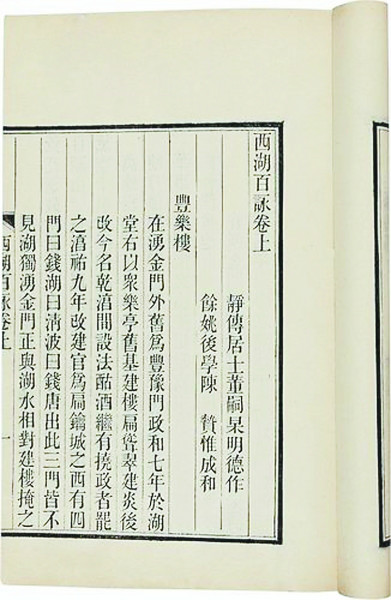 西湖百詠卷上
靜傳居士董嗣杲明德作
餘姚後學陳贄惟成和
豐樂樓
在湧金門外舊為豐豫門政和七年於湖
堂右以衆樂亭舊基建樓扁聳翠建炎後
改今名乾道間設法酤酒繼有撓政者罷
之淳祐九年改建官為扃鑰城之西有四
門曰錢湖曰清波曰錢唐出此三門皆不
見湖獨湧金門正與湖水相對建樓掩之
西湖百詠卷上 一